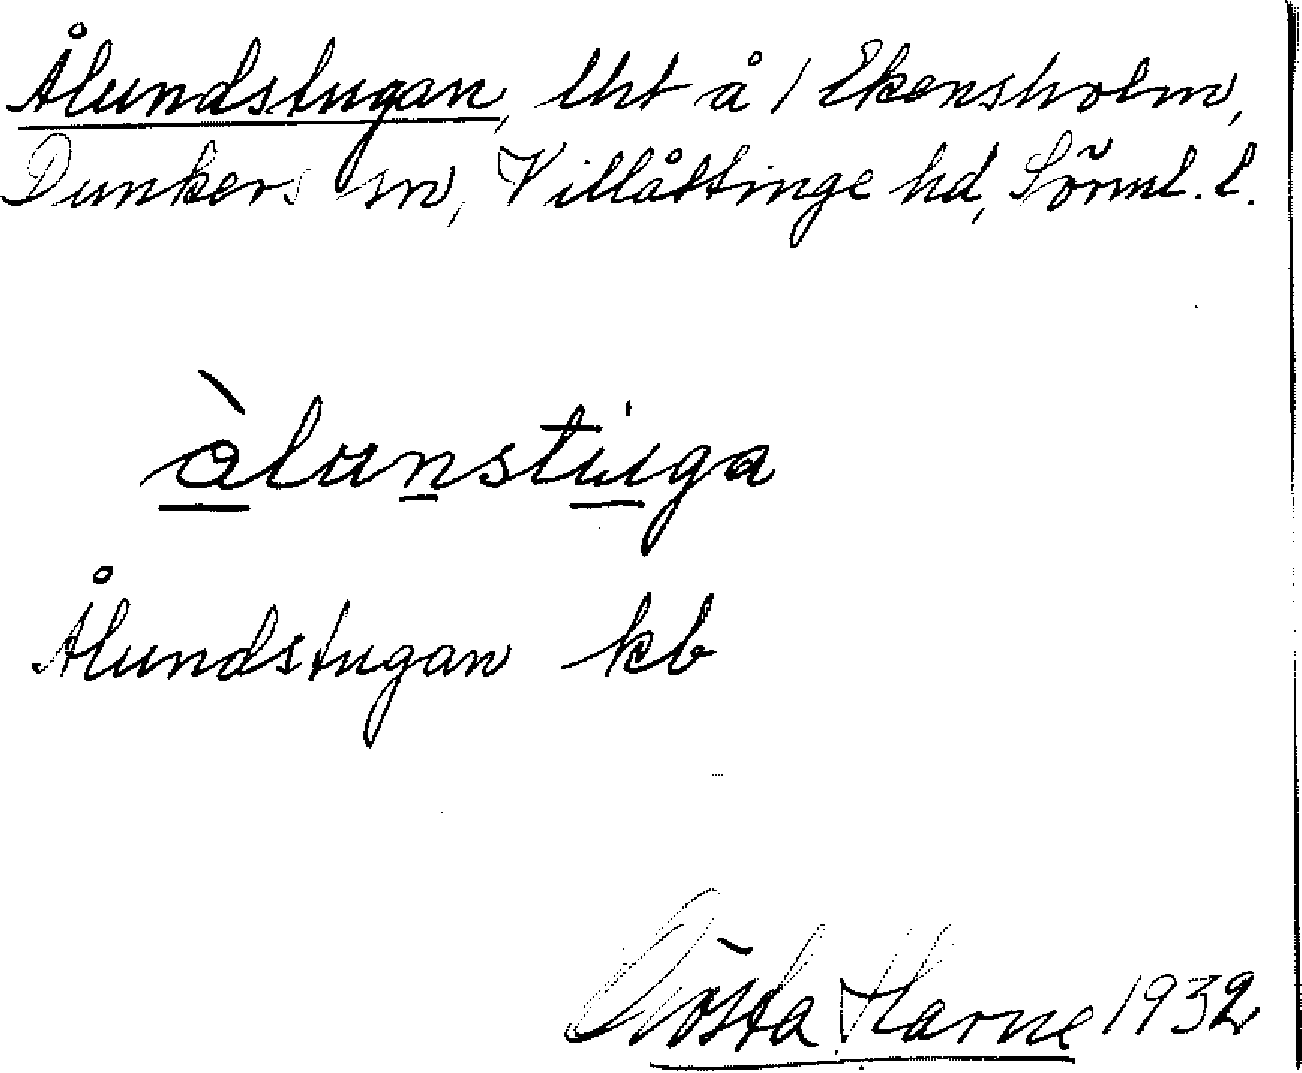 Ålundstugan, lht å / Ekensholm,
Dunkers sn, Villåttinge hd, Sörml. l.
àlunstuga
Ålundstugan kb
Gösta Harne 1932